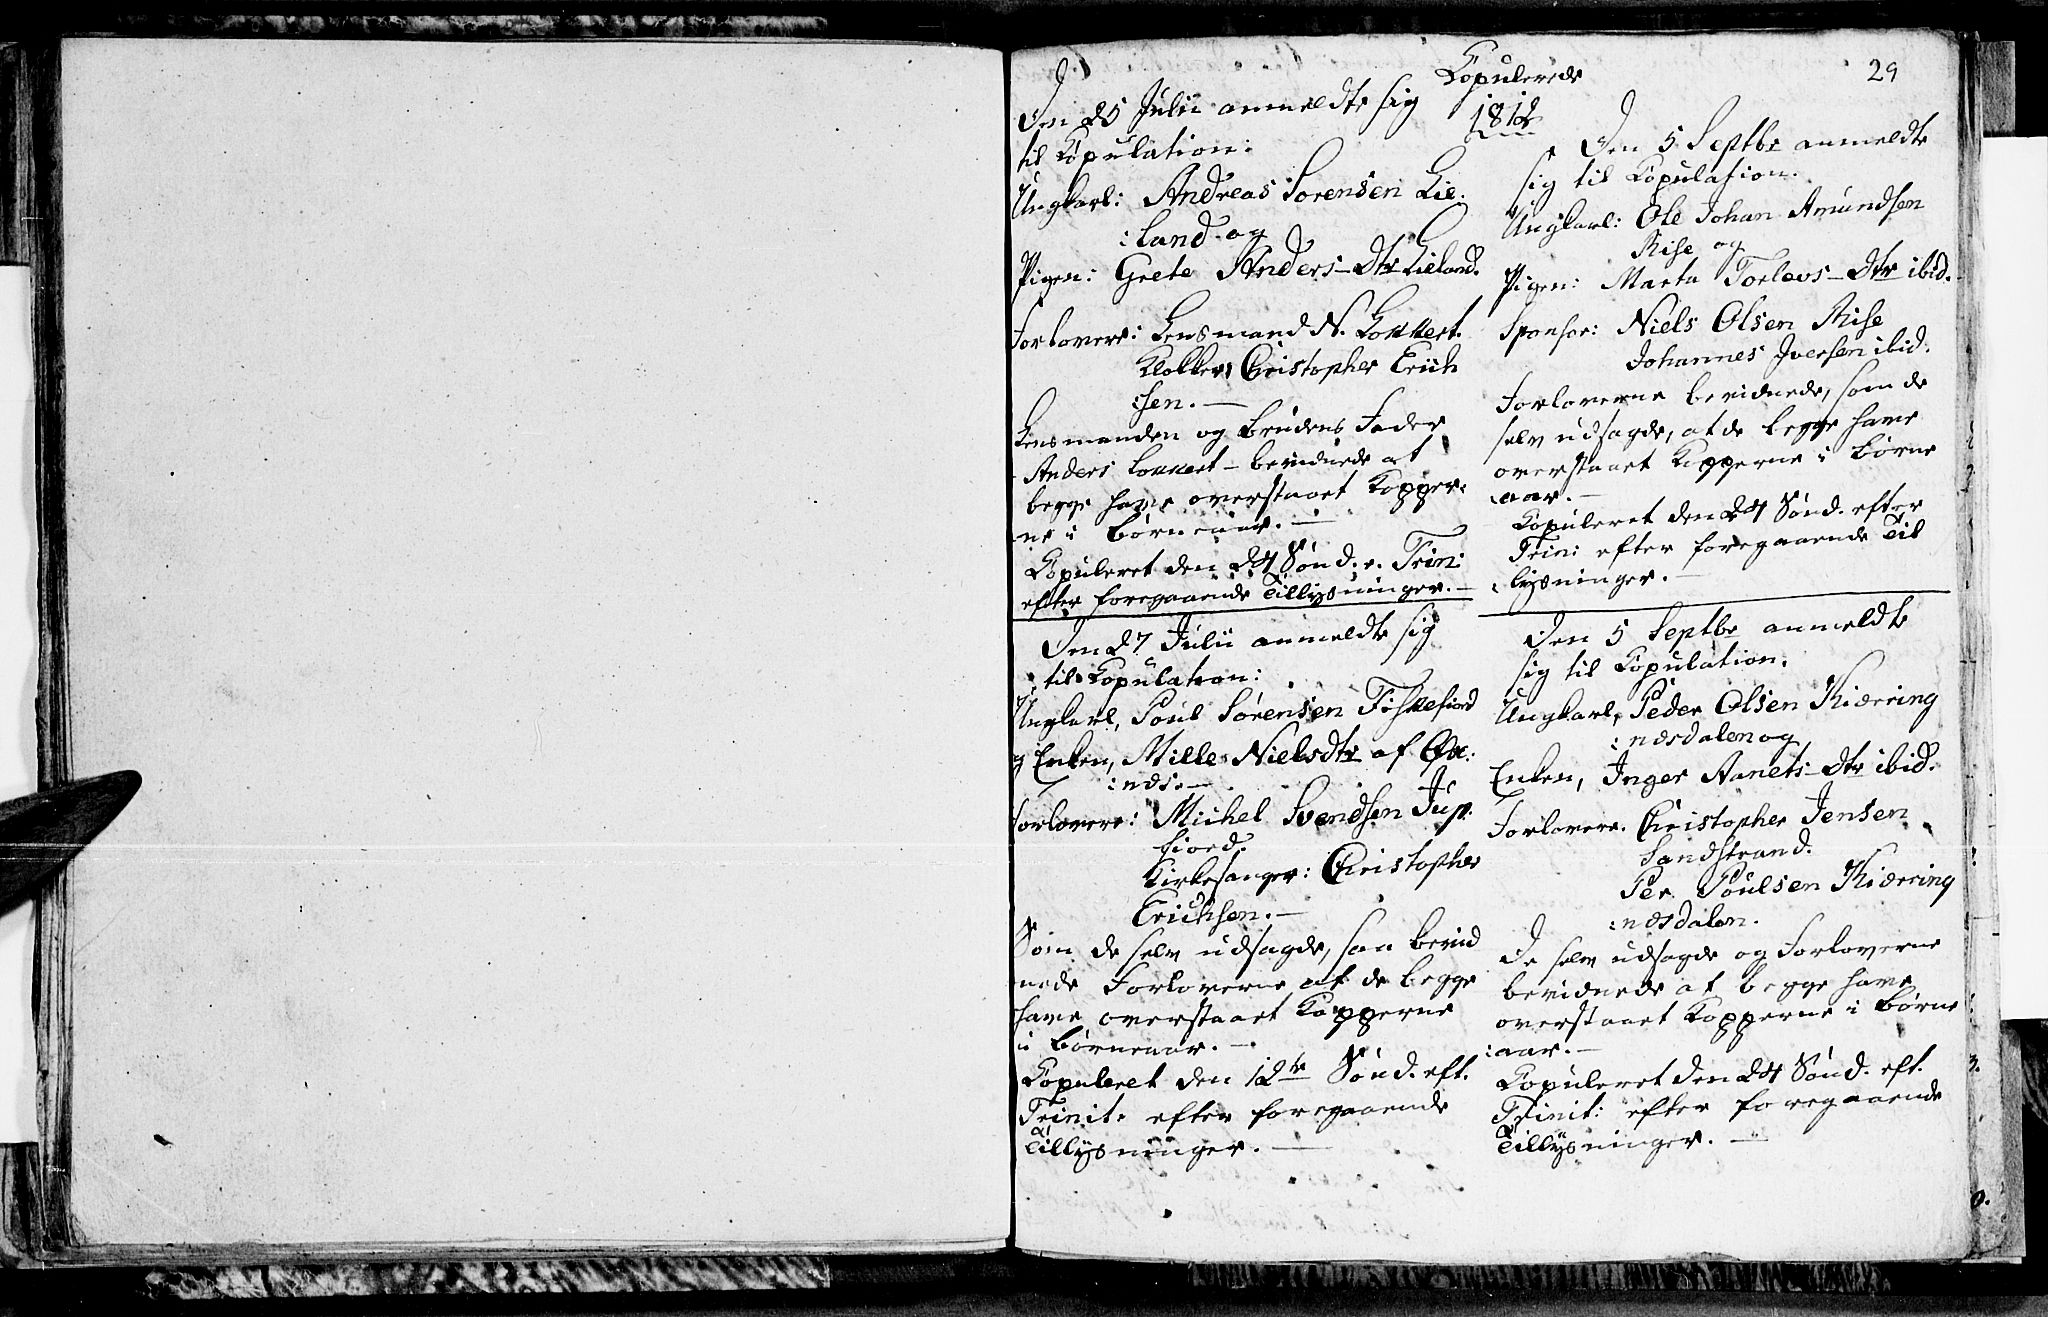 Copulerede
29
1812
Den 25 Julii anmeldte sig
til Copulation:
Ungkarl: Andreas Sorensen Lie:
:land og
Pigen: Grete Anders-Dtr Lieland.
Forlovere: Lensmand N. Lockert.
Klokker Christopher Erich
:sen. —
Lensmanden og Brudens Fader
Anders Lockert - bevidnede at
begge have overstaaet Kopper:
ne i Børneaar. —
Copuleret den 24 Sönd. e. Trin:
efter foregaaende Tillysninger. —
Den 27 Julii anmeldte sig
til Copulation:
Ungkarl, Poul Sørensen Fiskefiord
og Enken, Mille Nielsdtr af Oxe:
:næs. —
Forlovere: Michel Svendsen Jup:
fiord.
Kirkesanger: Christopher
Erichsen. —
Som de selv udsagde, saa bevid
nede Forloverne at de begge
have overstaaet Kopperne
i Børneaar. —
Copuleret den 12te Sönd. eft.
Trinit: efter foregaaende
Tillysninger. —
Den 5 Septbr anmeldte
sig til Copulation.
Ungkarl: Ole Johan Amundsen
Rise og
Pigen: Marta Torlevs-Dtr ibid.
Sponsor: Niels Olsen Rise
Johannes Iversen ibid:
Forloverne bevidnede, som de
selv udsagde, at de begge have
overstaaet Kopperne i Børne
:aar. —
Copuleret den 24 Sönd. efter
Trin: efter foregaaende Til
:lysninger. —
Den 5 Septbr anmeldte
sig til Copulation.
Ungkarl, Peder Olsen Kiærring
:næsdalen og
Enken, Inger Aanets-Dtr ibid.
Forlovere. Christopher Jensen
Sandstrand.
Per Poulsen Kiærring
:næsdalen.
De selv udsagde og Forloverne
bevidnede at begge have
overstaaet Kopperne i Børne
:aar. —
Copuleret den 24 Sönd. eft.
Trinit: efter foregaaende
Tillysninger. —